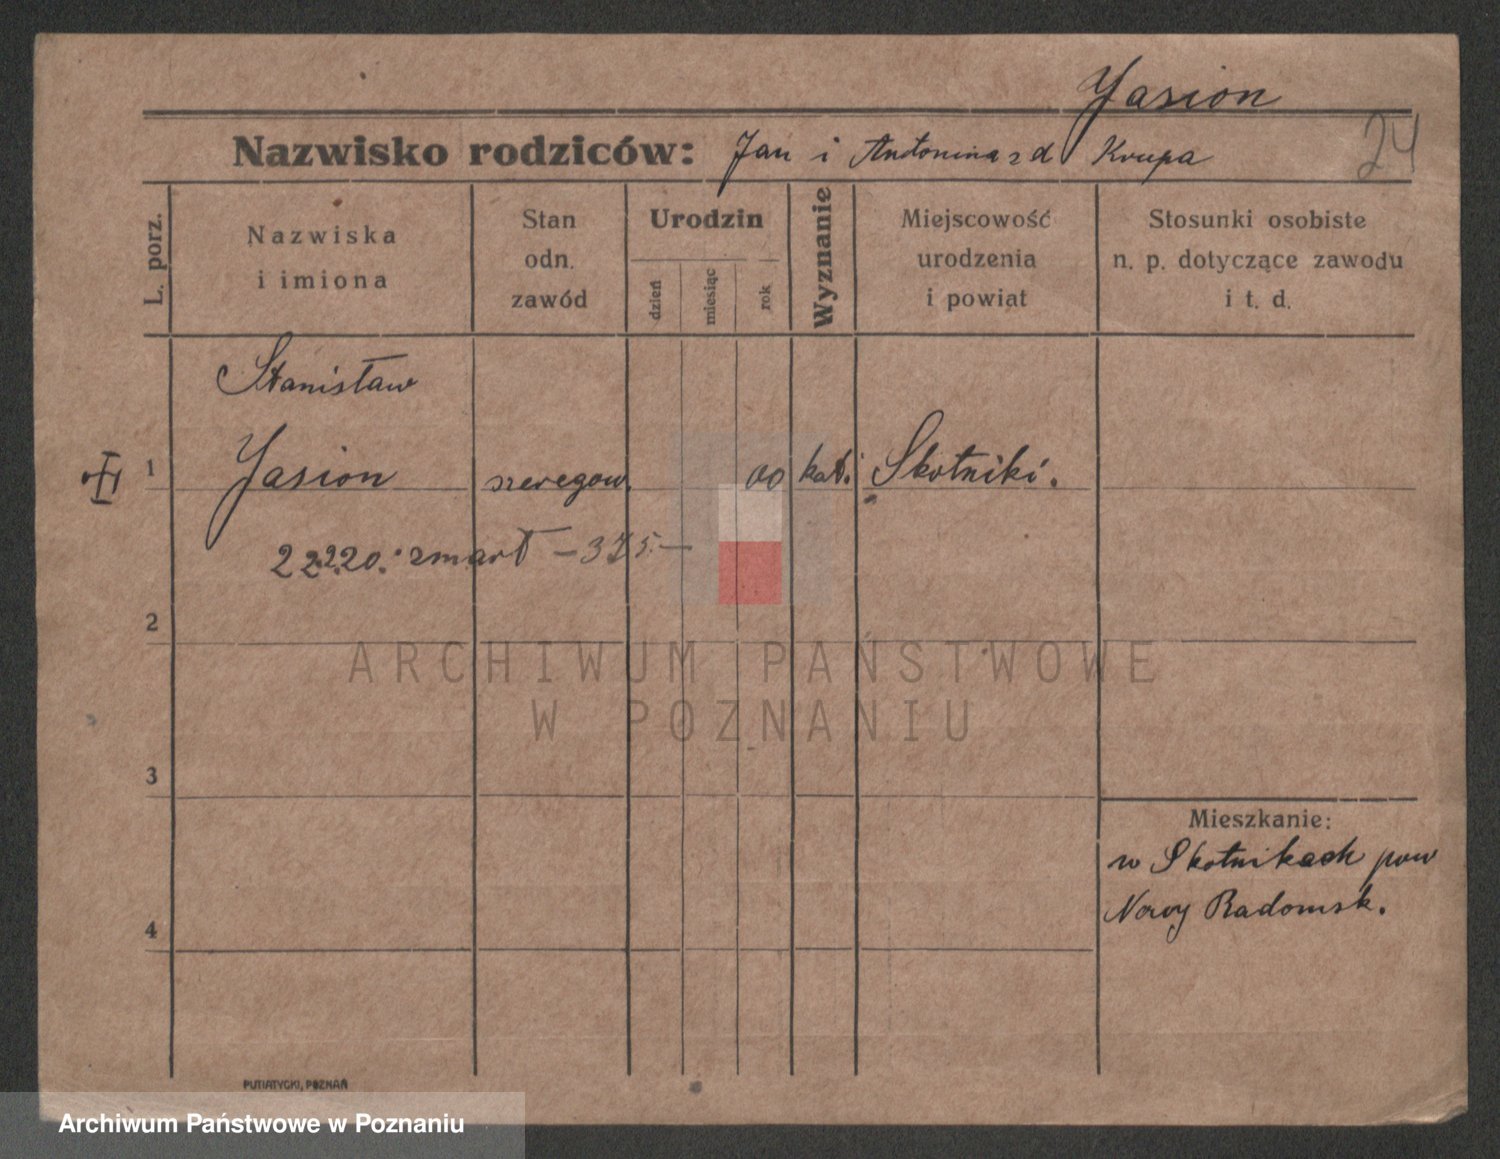 Jasion
Nazwisko rodziców: Jan i Antonina z d Krupa
24
L. porz.
Nazwiska
i imiona
Stan
odn.
zawód
Urodzin
dzień
miesiąc
rok
Wyznanie
Miejscowość
urodzenia
i powiat
Stosunki osobiste
n. p. dotyczące zawodu
i t. d.
Stanisław
1 Jasion szeregow. 00 kat. Skotniki.
22.2.20. zmarł – 375. –
2
ARCHIWUM PAŃSTWOWE
W POZNANIU
3
Mieszkanie:
w Skotnikach pow
Nowy Radomsk.
4
PUTIATYCKI, POZNAŃ
Archiwum Państwowe w Poznaniu